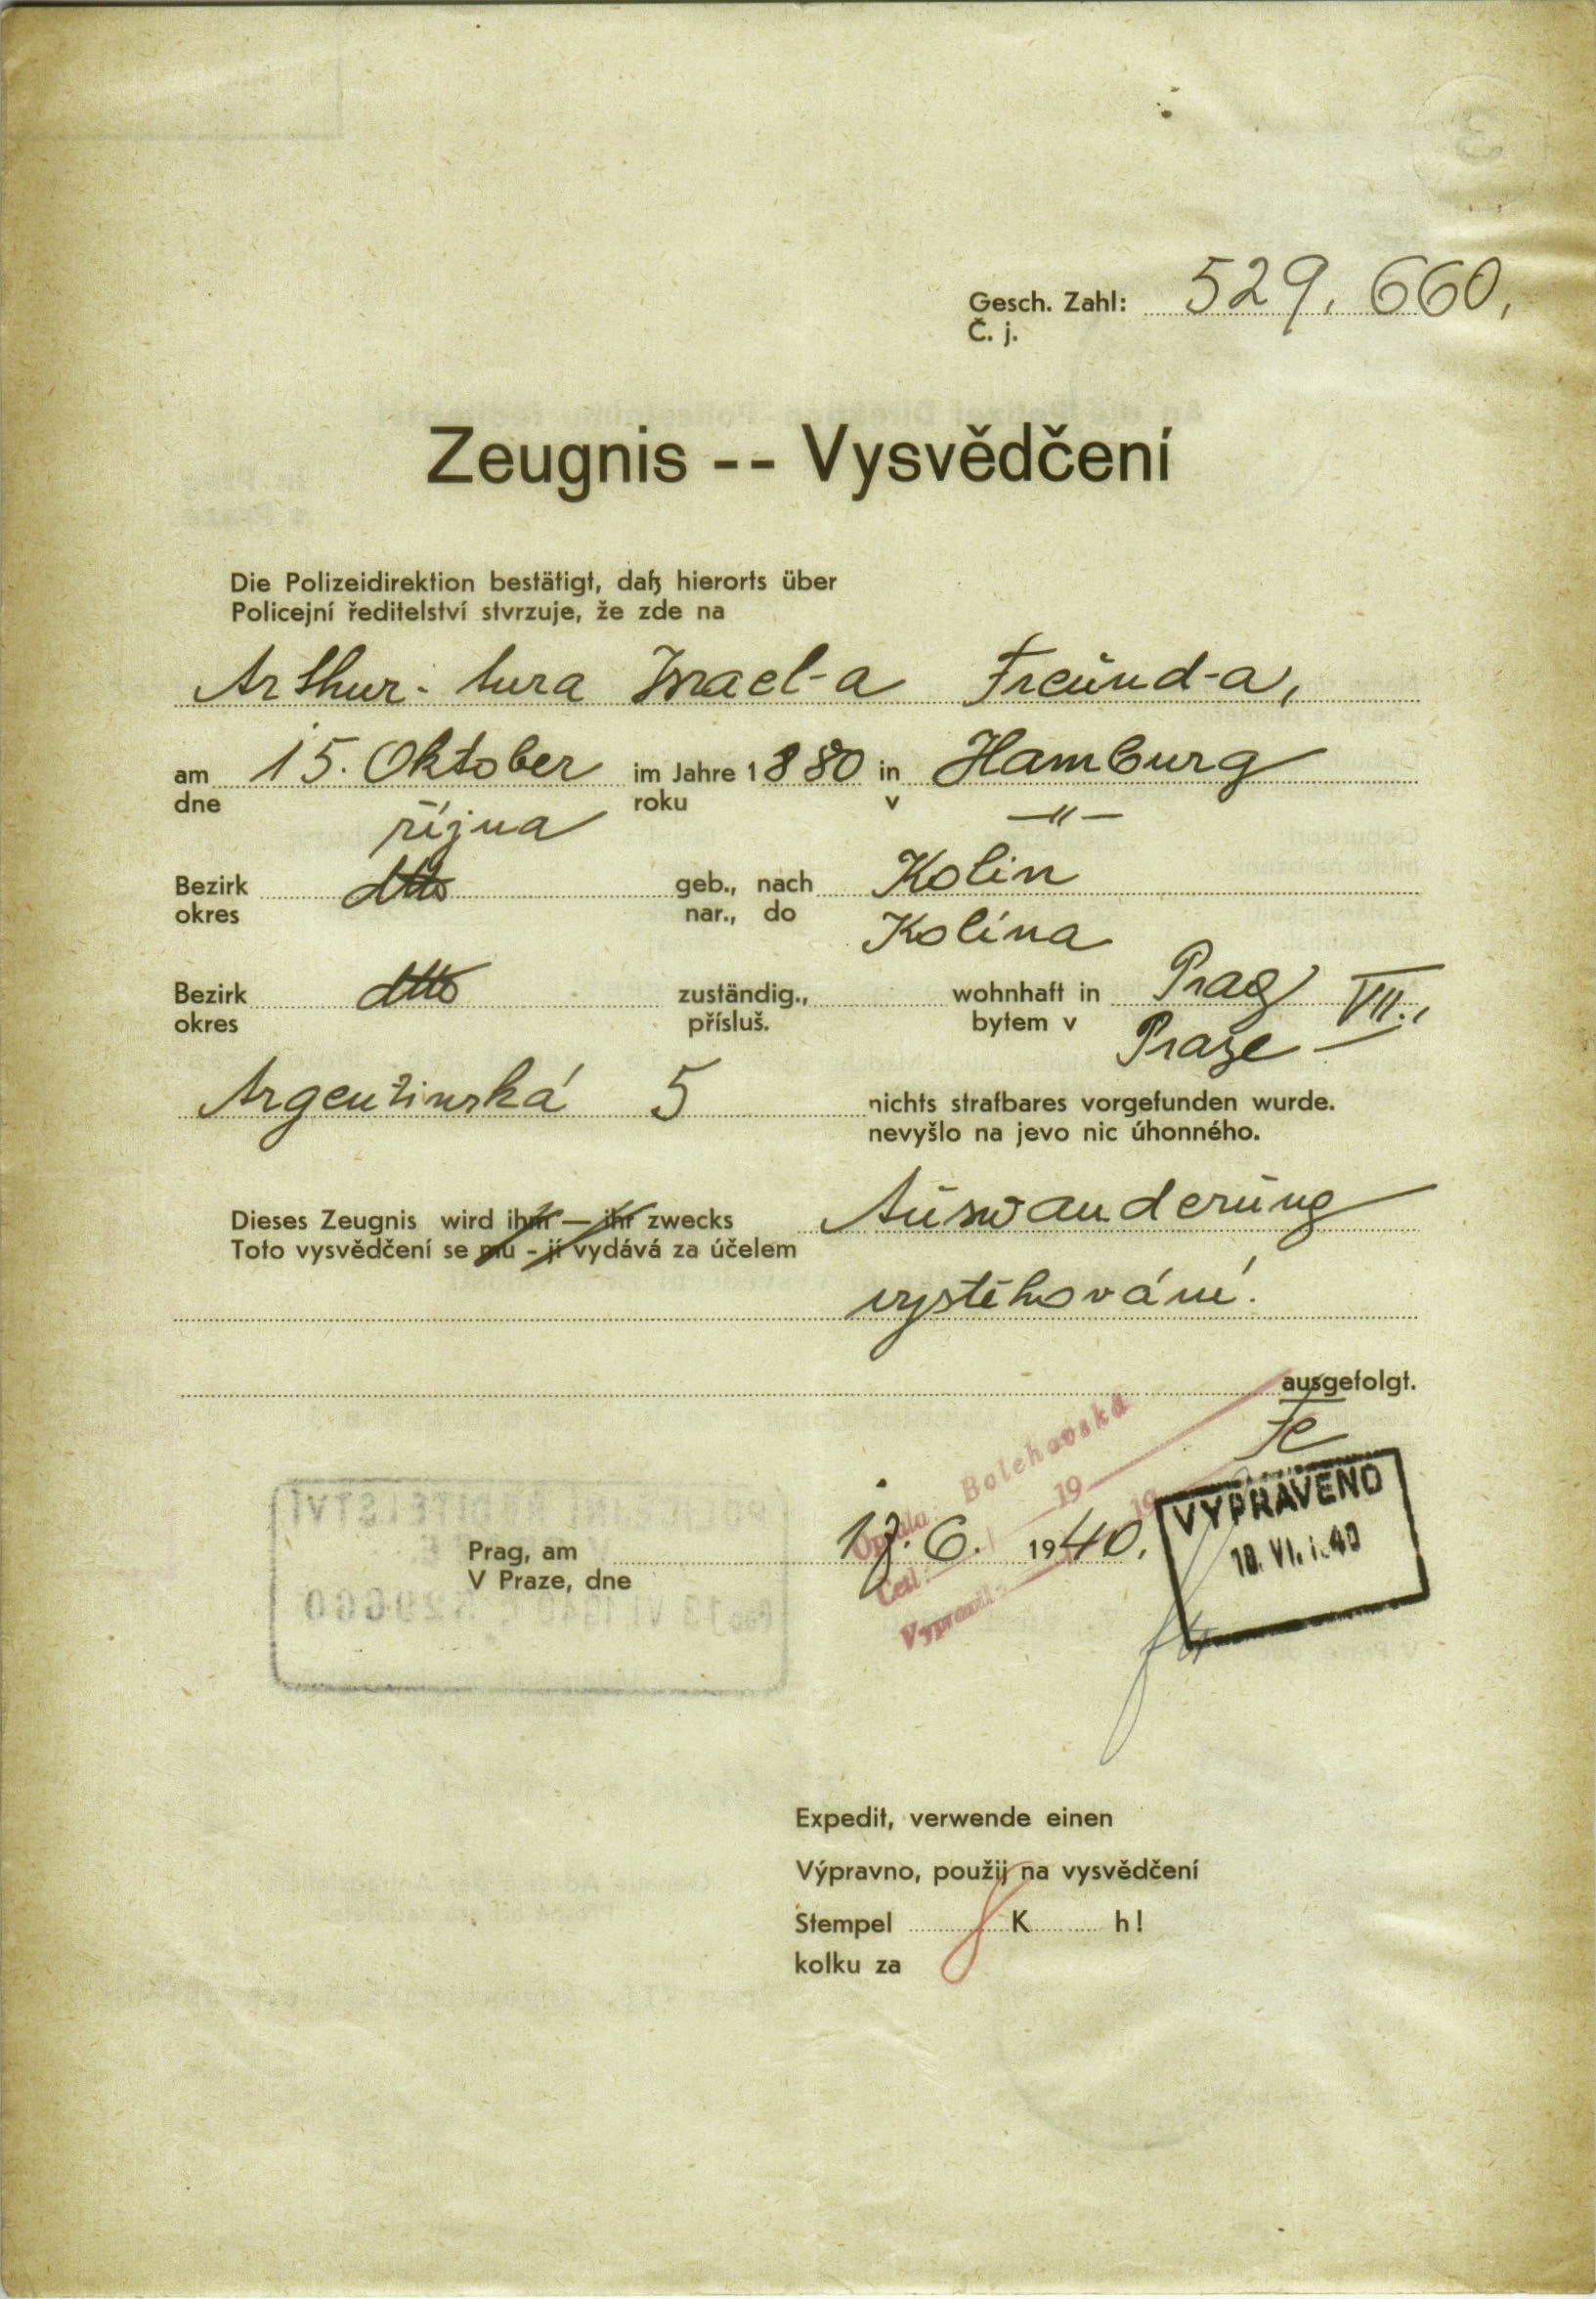 Gesch. Zahl: 529.660.
Č. j.
Zeugnis -- Vysvědčení
Die Polizeidirektion bestätigt, daß hierorts über
Policejní ředitelství stvrzuje, že zde na
Arthur-tura Israel-a Freund-a,
am 15. Oktober im Jahre 1880 in Hamburg
dne října roku v —〃—
Bezirk dtto geb., nach Kolin
okres nar., do Kolína
Bezirk dtto zuständig., wohnhaft in Prag VII.,
okres přísluš. bytem v Praze
Argentinská 5 nichts strafbares vorgefunden wurde.
nevyšlo na jevo nic úhonného.
Dieses Zeugnis wird ihm — ihr zwecks Auswanderung
Toto vysvědčení se mu - jí vydává za účelem
vystěhování.
ausgefolgt.
Fe
Bolehovská
19
19
Četl:
Vypravil:
VYPRAVENO
18. VI. 1940
Prag, am 17. 6. 1940.
V Praze, dne
Expedit, verwende einen
Výpravno, použij na vysvědčení
Stempel 8 K h!
kolku za